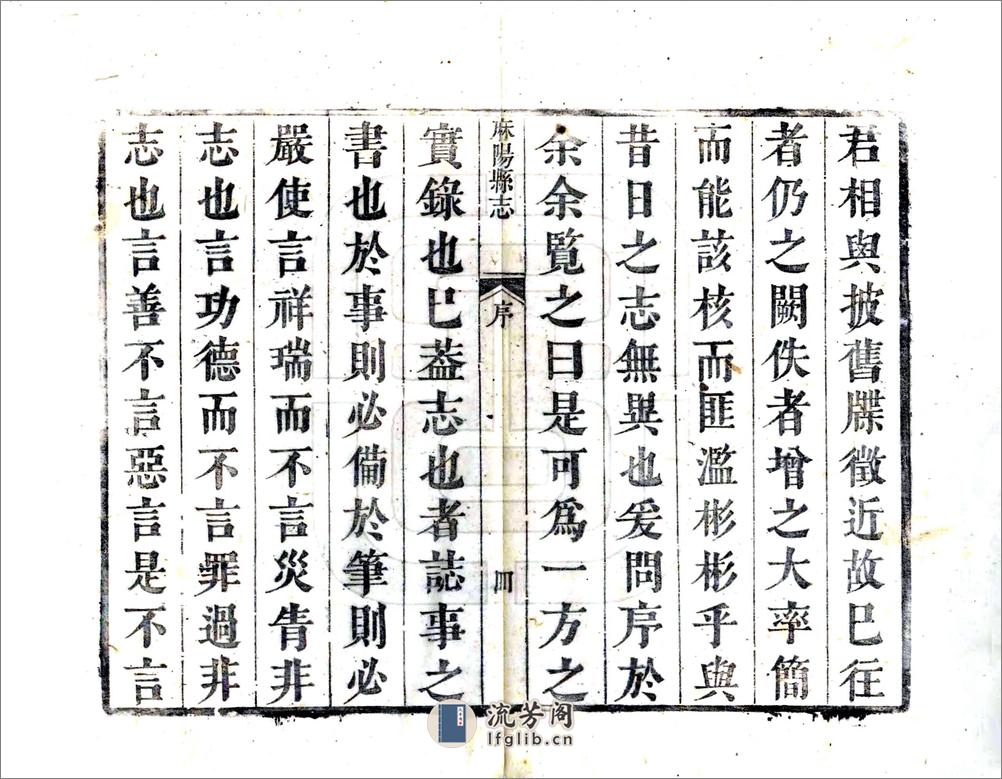 君相與披舊牒徵近故巳徃
者仍之闕佚者增之大率簡
而能該核而匪濫彬彬乎與
昔日之志無異也爰問序於
余余覧之曰是可爲一方之
麻陽縣志
序
四
實錄也巳葢志也者誌事之
書也於事則必備於筆則必
嚴使言祥瑞而不言災眚非
志也言功德而不言罪過非
志也言善不言惡言是不言
流芳阁
lfglib.cn